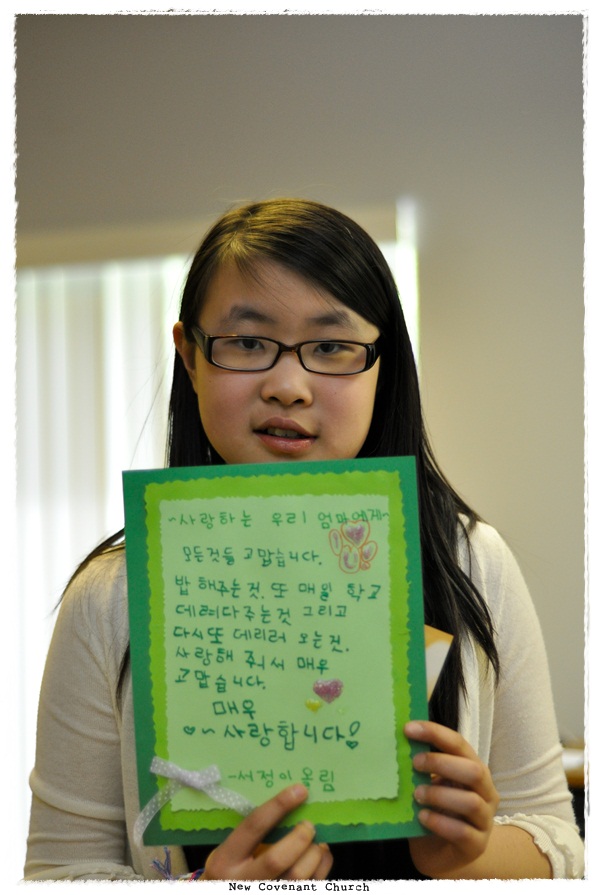 ~사랑하는 우리 엄마에게~
모든것들 고맙습니다.
밥 해주는것, 또 매일 학교
데려다주는것 그리고
다시또 데리러 오는것.
사랑해 줘서 매우
고맙습니다.
매우
♡~사랑합니다!
-서정이 올림
New Covenant Church